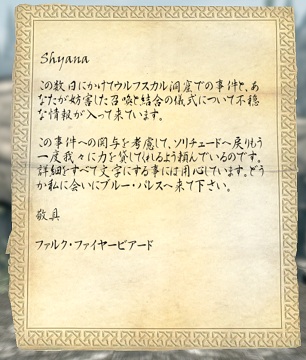 Shyana
この数日にかけてウルフスカル洞窟での事件と、あ
なたが妨害した召喚と結合の儀式について不穏
な情報が入って来ています。
この事件への関与を考慮して、ソリチュードへ戻りもう
一度我々に力を貸してくれるよう頼んでいるのです。
詳細をすべて文字にする事には用心しています。どう
か私に会いにブルー・パレスへ来て下さい。
敬具
ファルク・ファイヤービアード